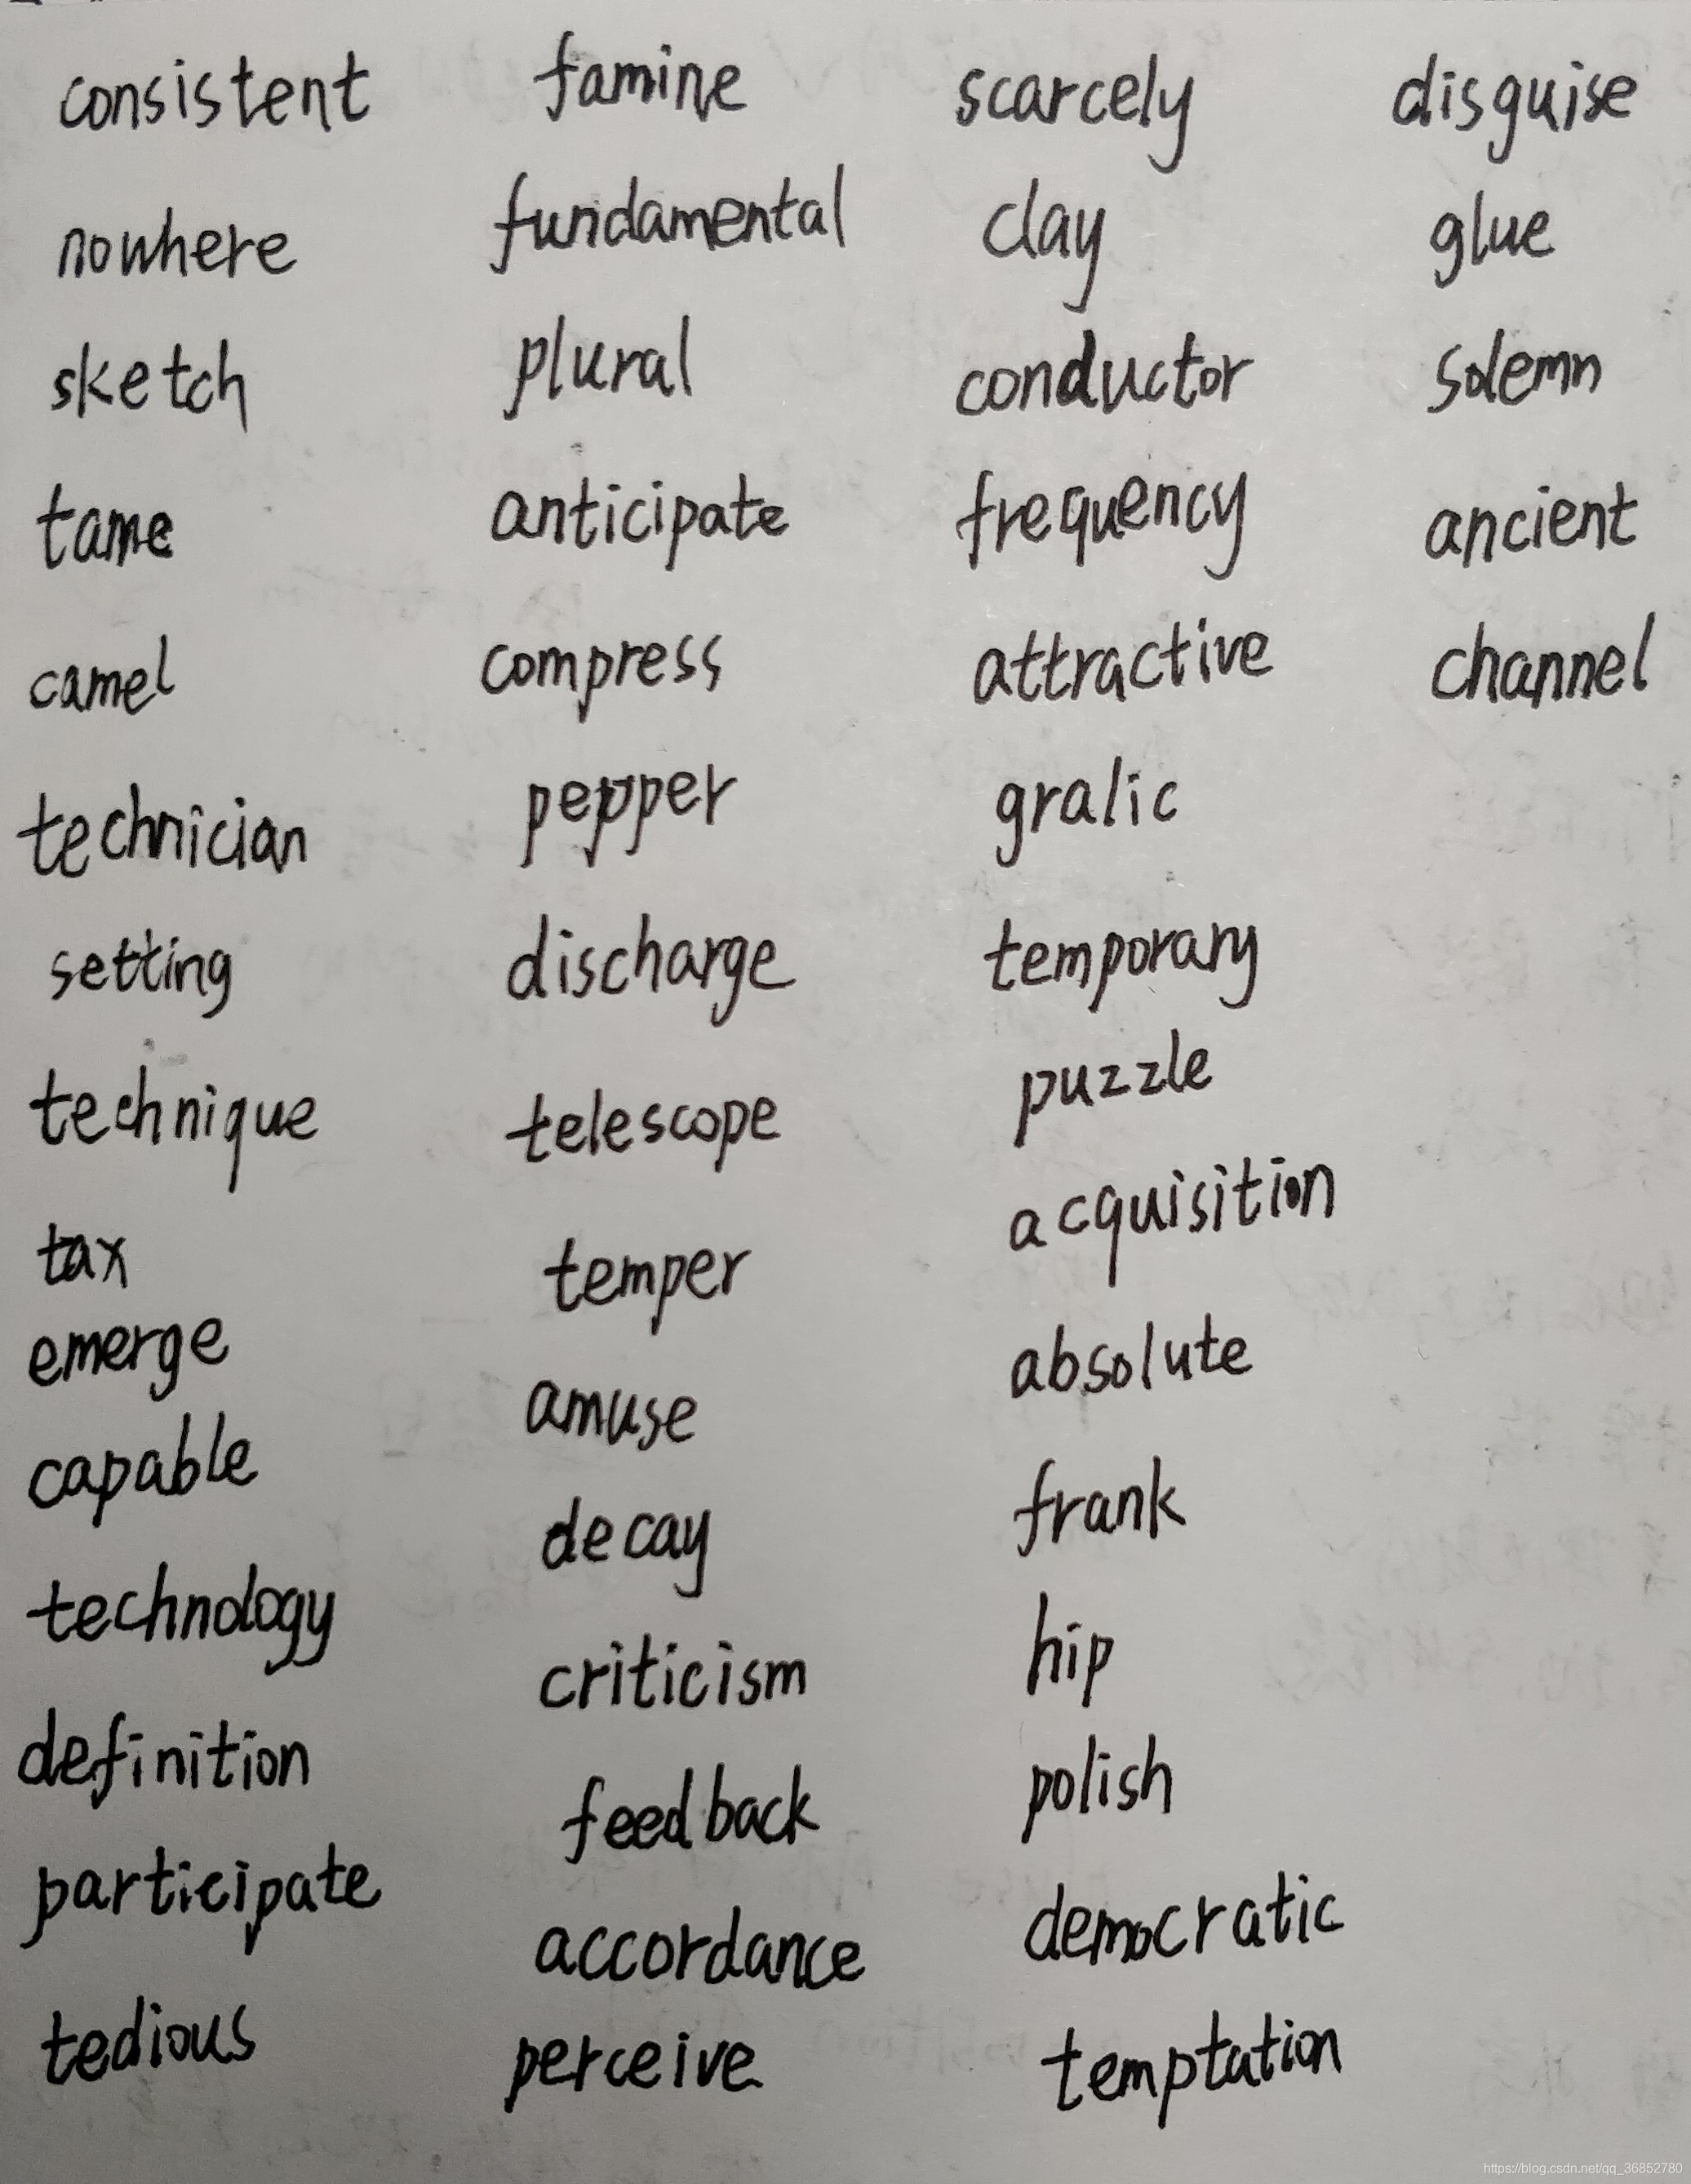 consistent
nowhere
sketch
tame
camel
technician
setting
technique
tax
emerge
capable
technology
definition
participate
tedious
famine
fundamental
plural
anticipate
compress
pepper
discharge
telescope
temper
amuse
decay
criticism
feedback
accordance
perceive
scarcely
clay
conductor
frequency
attractive
gralic
temporary
puzzle
acquisition
absolute
frank
hip
polish
democratic
temptation
disguise
glue
solemn
ancient
channel
https://blog.csdn.net/qq_36852780